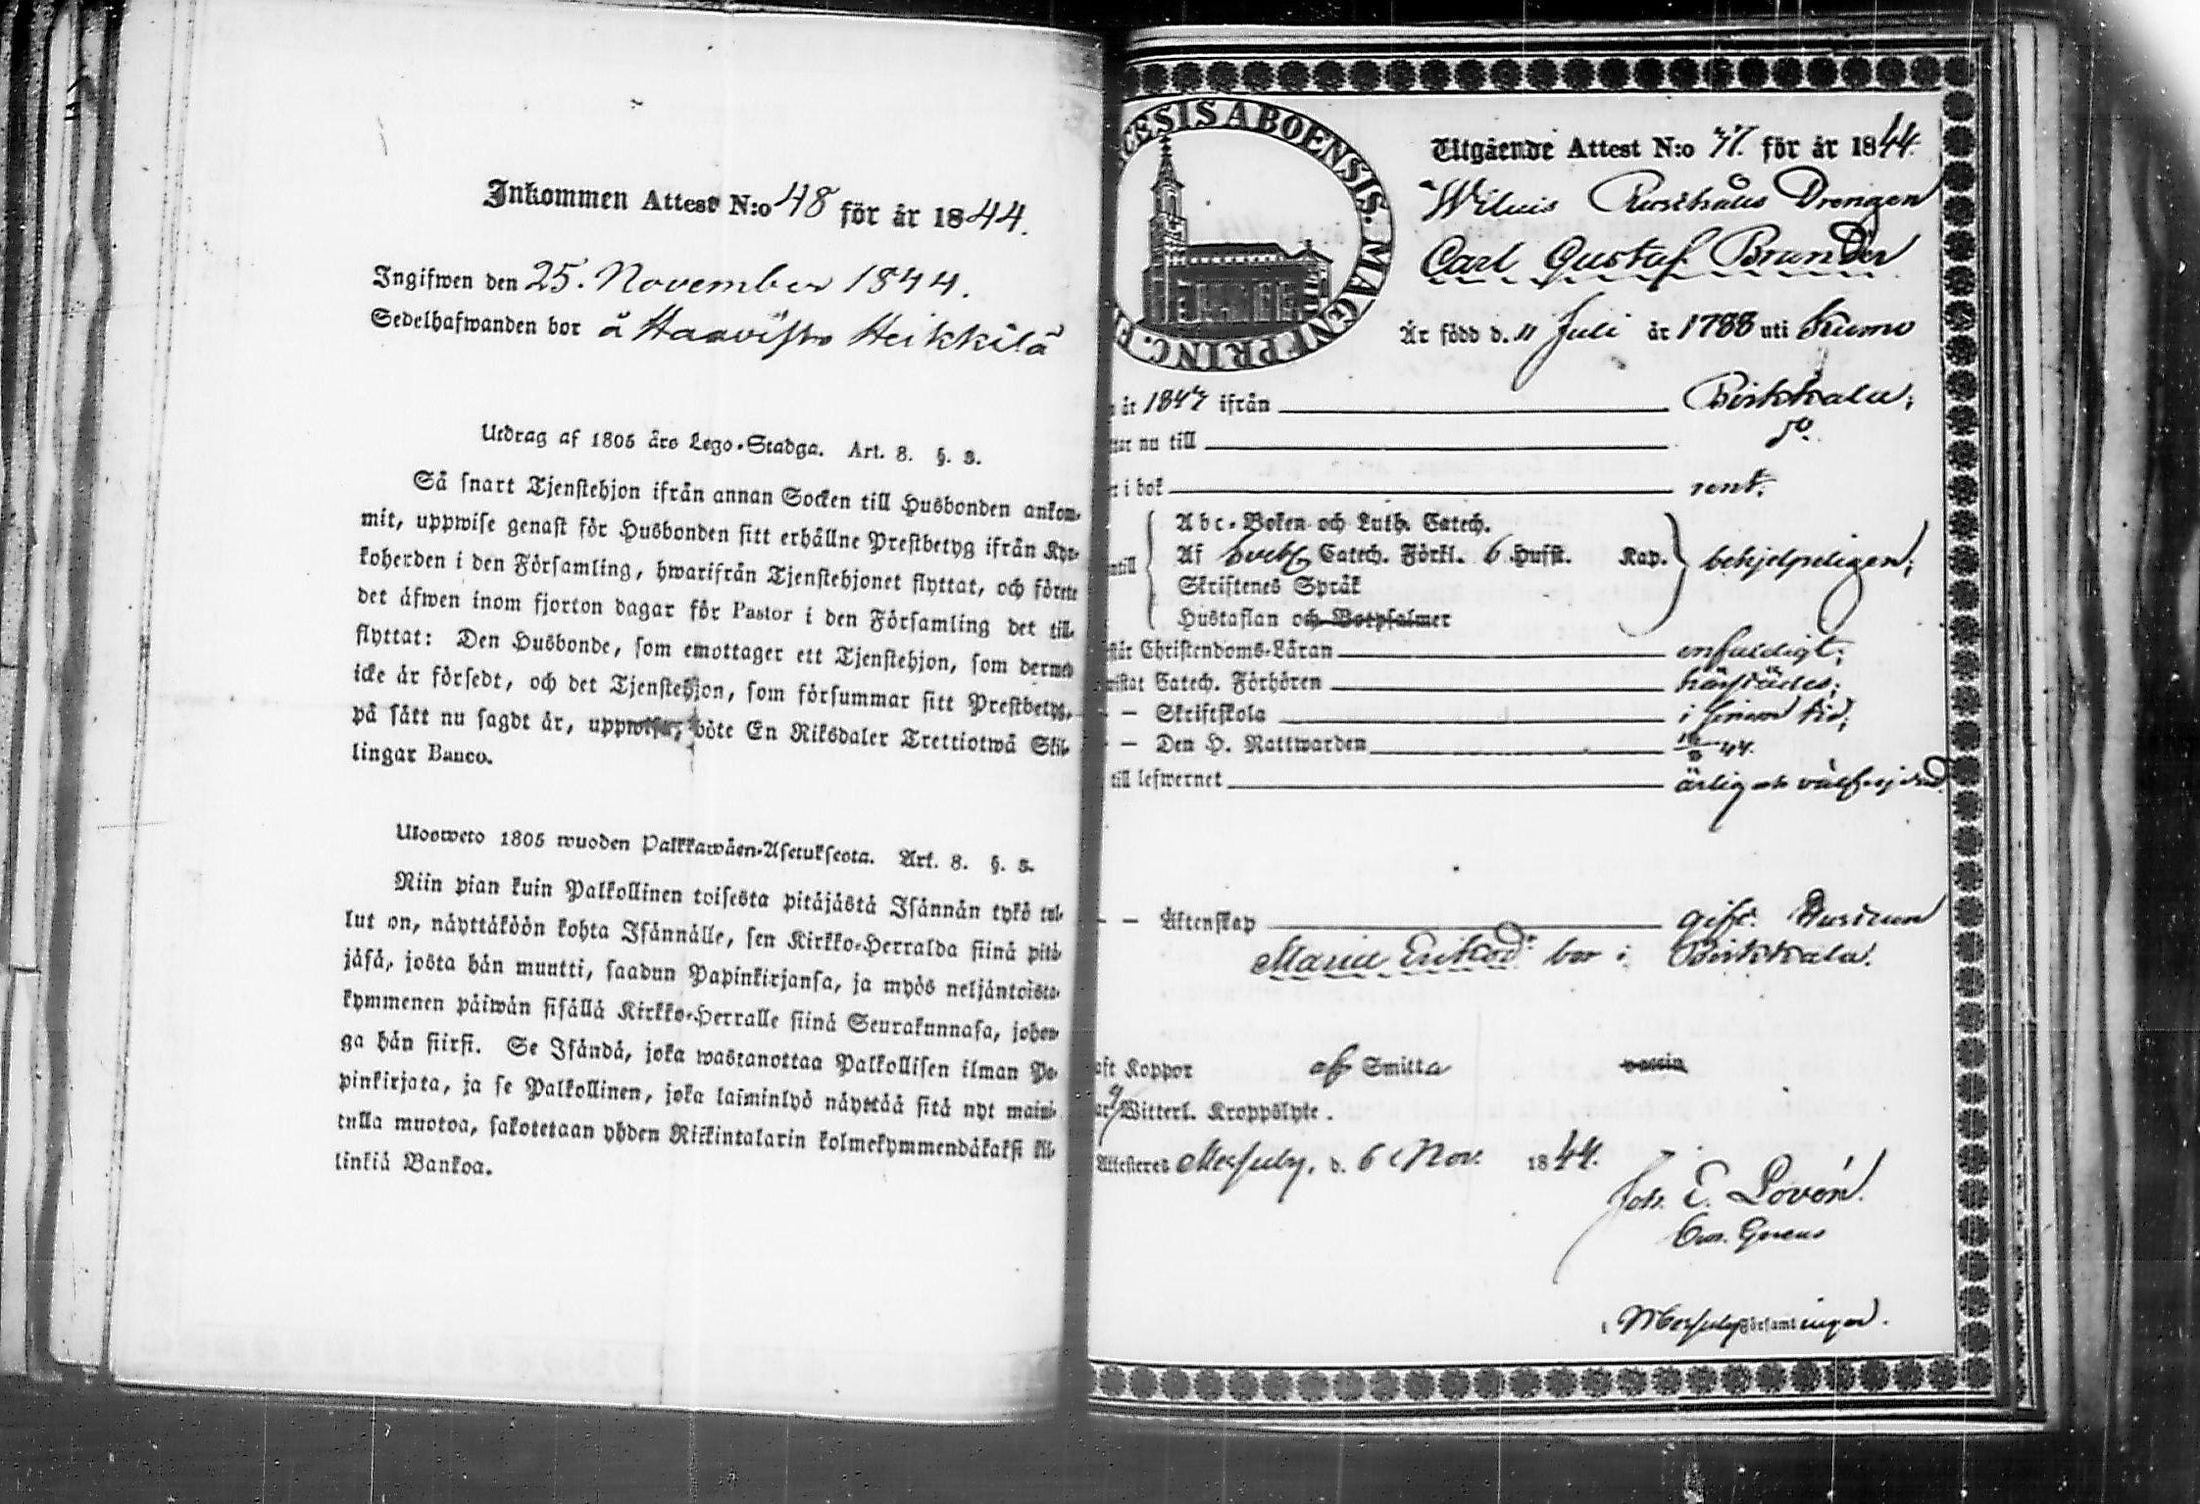 Inkommen Attest N:o 48 för år 1844.
Ingifwen den 25. November 1844.
Sedelhafwanden bor å Haavisto Heikkilä
Utdrag af 1805 års Lego-Stadga. Art. 8. §. 3.
Så snart Tjenstehjon ifrån annan Socken till Husbonden ankom-
mit, uppwise genast för Husbonden sitt erhållne Prestbetyg ifrån Kyr-
koherden i den Församling, hwarifrån Tjenstehjonet flyttat, och förete
det äfwen inom fjorton dagar för Pastor i den Församling det till-
flyttat: Den Husbonde, som emottager ett Tjenstehjon, som dermed
icke är försedt, och det Tjenstehjon, som försummar sitt Prestbetyg,
på sätt nu sagdt är, uppwisa, böte En Riksdaler Trettiotwå Skil-
lingar Banco.
Ulosweto 1805 wuoden Palkkawäen-Asetuksesta. Art. 8. §. 3.
Niin pian kuin Palkollinen toisesta pitäjästä Isännän tykö tul-
lut on, näyttäköön kohta Isännälle, sen Kirkko-Herralda siinä pitä-
jäsä, josta hän muutti, saadun Papinkirjansa, ja myös neljäntoista-
kymmenen päiwän sisällä Kirkko-Herralle siinä Seurakunnasa, johon-
ga hän siirsi. Se Isändä, joka wastanottaa Palkollisen ilman Pa-
pinkirjata, ja se Palkollinen, joka laiminlyö näyttää sitä nyt maini-
tulla muotoa, sakotetaan yhden Riikintalarin kolmekymmendäkaksi kil-
linkiä Bankoa.
ECESIS ABOENSIS. MAGNI PRINC. F
Utgående Attest N:o 47. för år 1844.
Rusthåls Drengen
Carl Gustaf Brander
Är född d. 11 Juli år 1788 uti Kumo
år 1844 ifrån Birkkala;
nu till do.
i bok rent;
Abc-Boken och Luth. Catech.
Af Svebel. Catech. Förkl. 6 Hufst. Kap. behjelpeligen;
Skriftenes Språk
Hustaflan och Botpsalmer
står Christendoms-Läran enfaldigt;
Catech. Förhören härstädes;
— Skriftskola i sinom tid;
— Den H. Nattwarden 44.
till lefwernet ärlig och välfrejdad.
— — Äktenskap gift. Hustrun
Maria Eriksdr bor i Birkkala.
aft Koppor af Smitta vaccin
Witterl. Kroppslyte.
Attesteras d. 6 Nov. 1844.
Joh. E. Lovén.
i Församlingen.